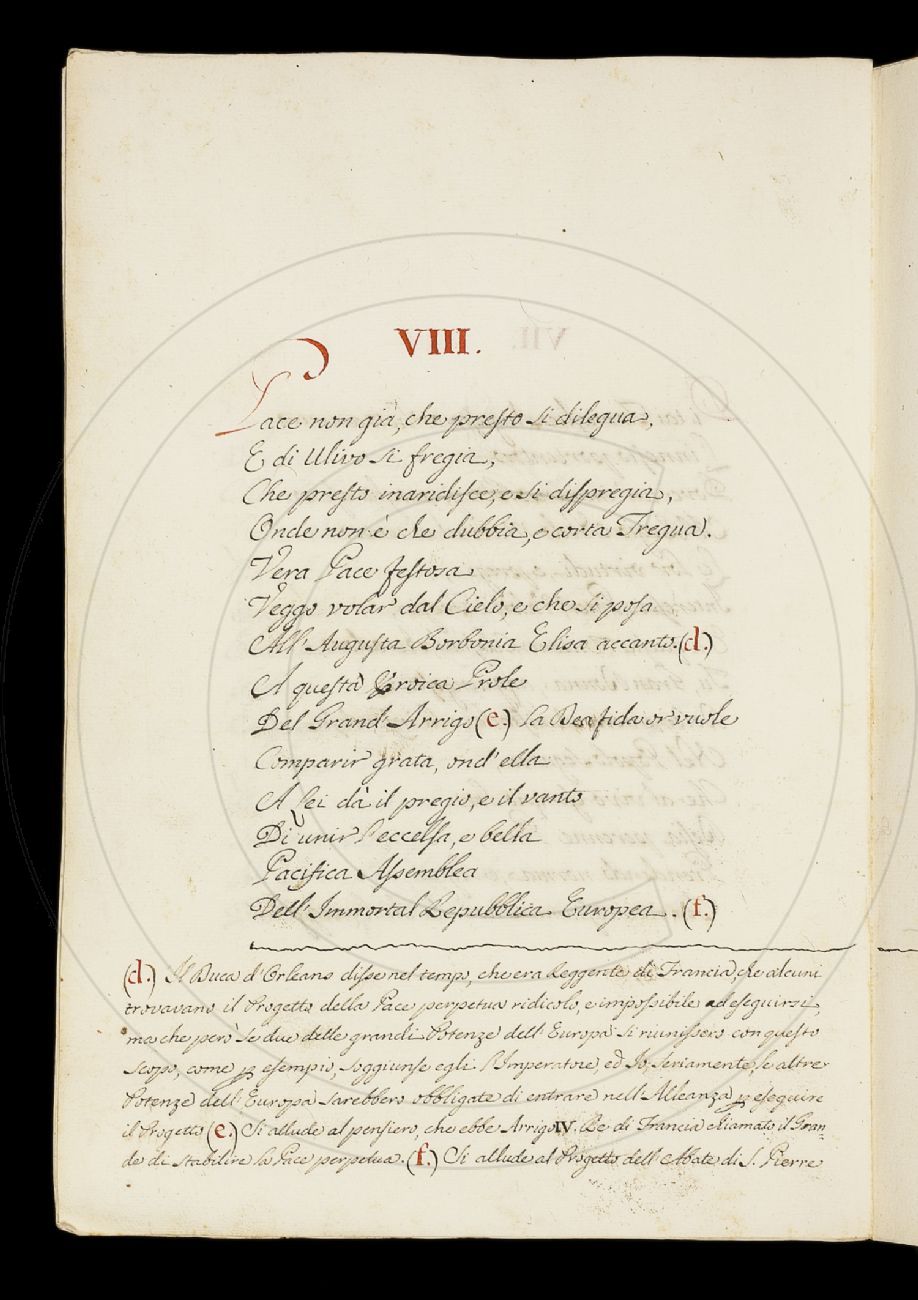 VIII.
Pace non già, che presto si dilegua,
E di Ulivo si fregia,
Che presto inaridisce, e si dispregia,
Onde non è che dubbia, e corta Tregua.
Vera Pace festosa
Veggo volar dal Cielo, e che si posa
All' Augusta Borbonia Elisa accanto. (d.)
A questa Eroica Prole
Del Grand' Arrigo (e.) la Dea fida or vuole
Comparir grata, ond' ella
A Lei dà il pregio, e il vanto
Di unir l'eccelsa, e bella
Pacifica Assemblea
Dell' Immortal Repubblica Europea. (f.)
(d.) Il Duca d'Orleans disse nel tempo, che era Reggente di Francia, che alcuni
trovavano il Progetto della Pace perpetua ridicolo, e impossibile ad eseguirsi,
ma che però se due delle grandi Potenze dell' Europa si riunissero con questo
scopo, come p esempio, soggiunse egli l'Imperatore, ed Io, seriamente, le altre
Potenze dell' Europa sarebbero obbligate di entrare nell' Alleanza p eseguire
il Progetto (e.) Si allude al pensiero, che ebbe Arrigo IV. Re di Francia chiamato il Gran-
de di stabilire la Pace perpetua. (f.) Si allude al Progetto dell' Abate di S. Pierre